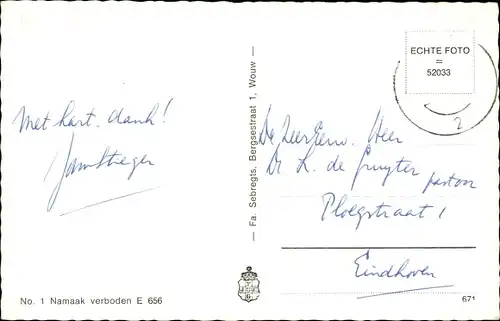 Met hart. dank!
ECHTE FOTO
=
52033
2
De Zeer Eerw. Heer
Dr. L. de Gruyter pastoor
Ploegstraat 1
Eindhoven
Fa. Sebregts, Bergsestraat 1, Wouw
No. 1 Namaak verboden E 656
671